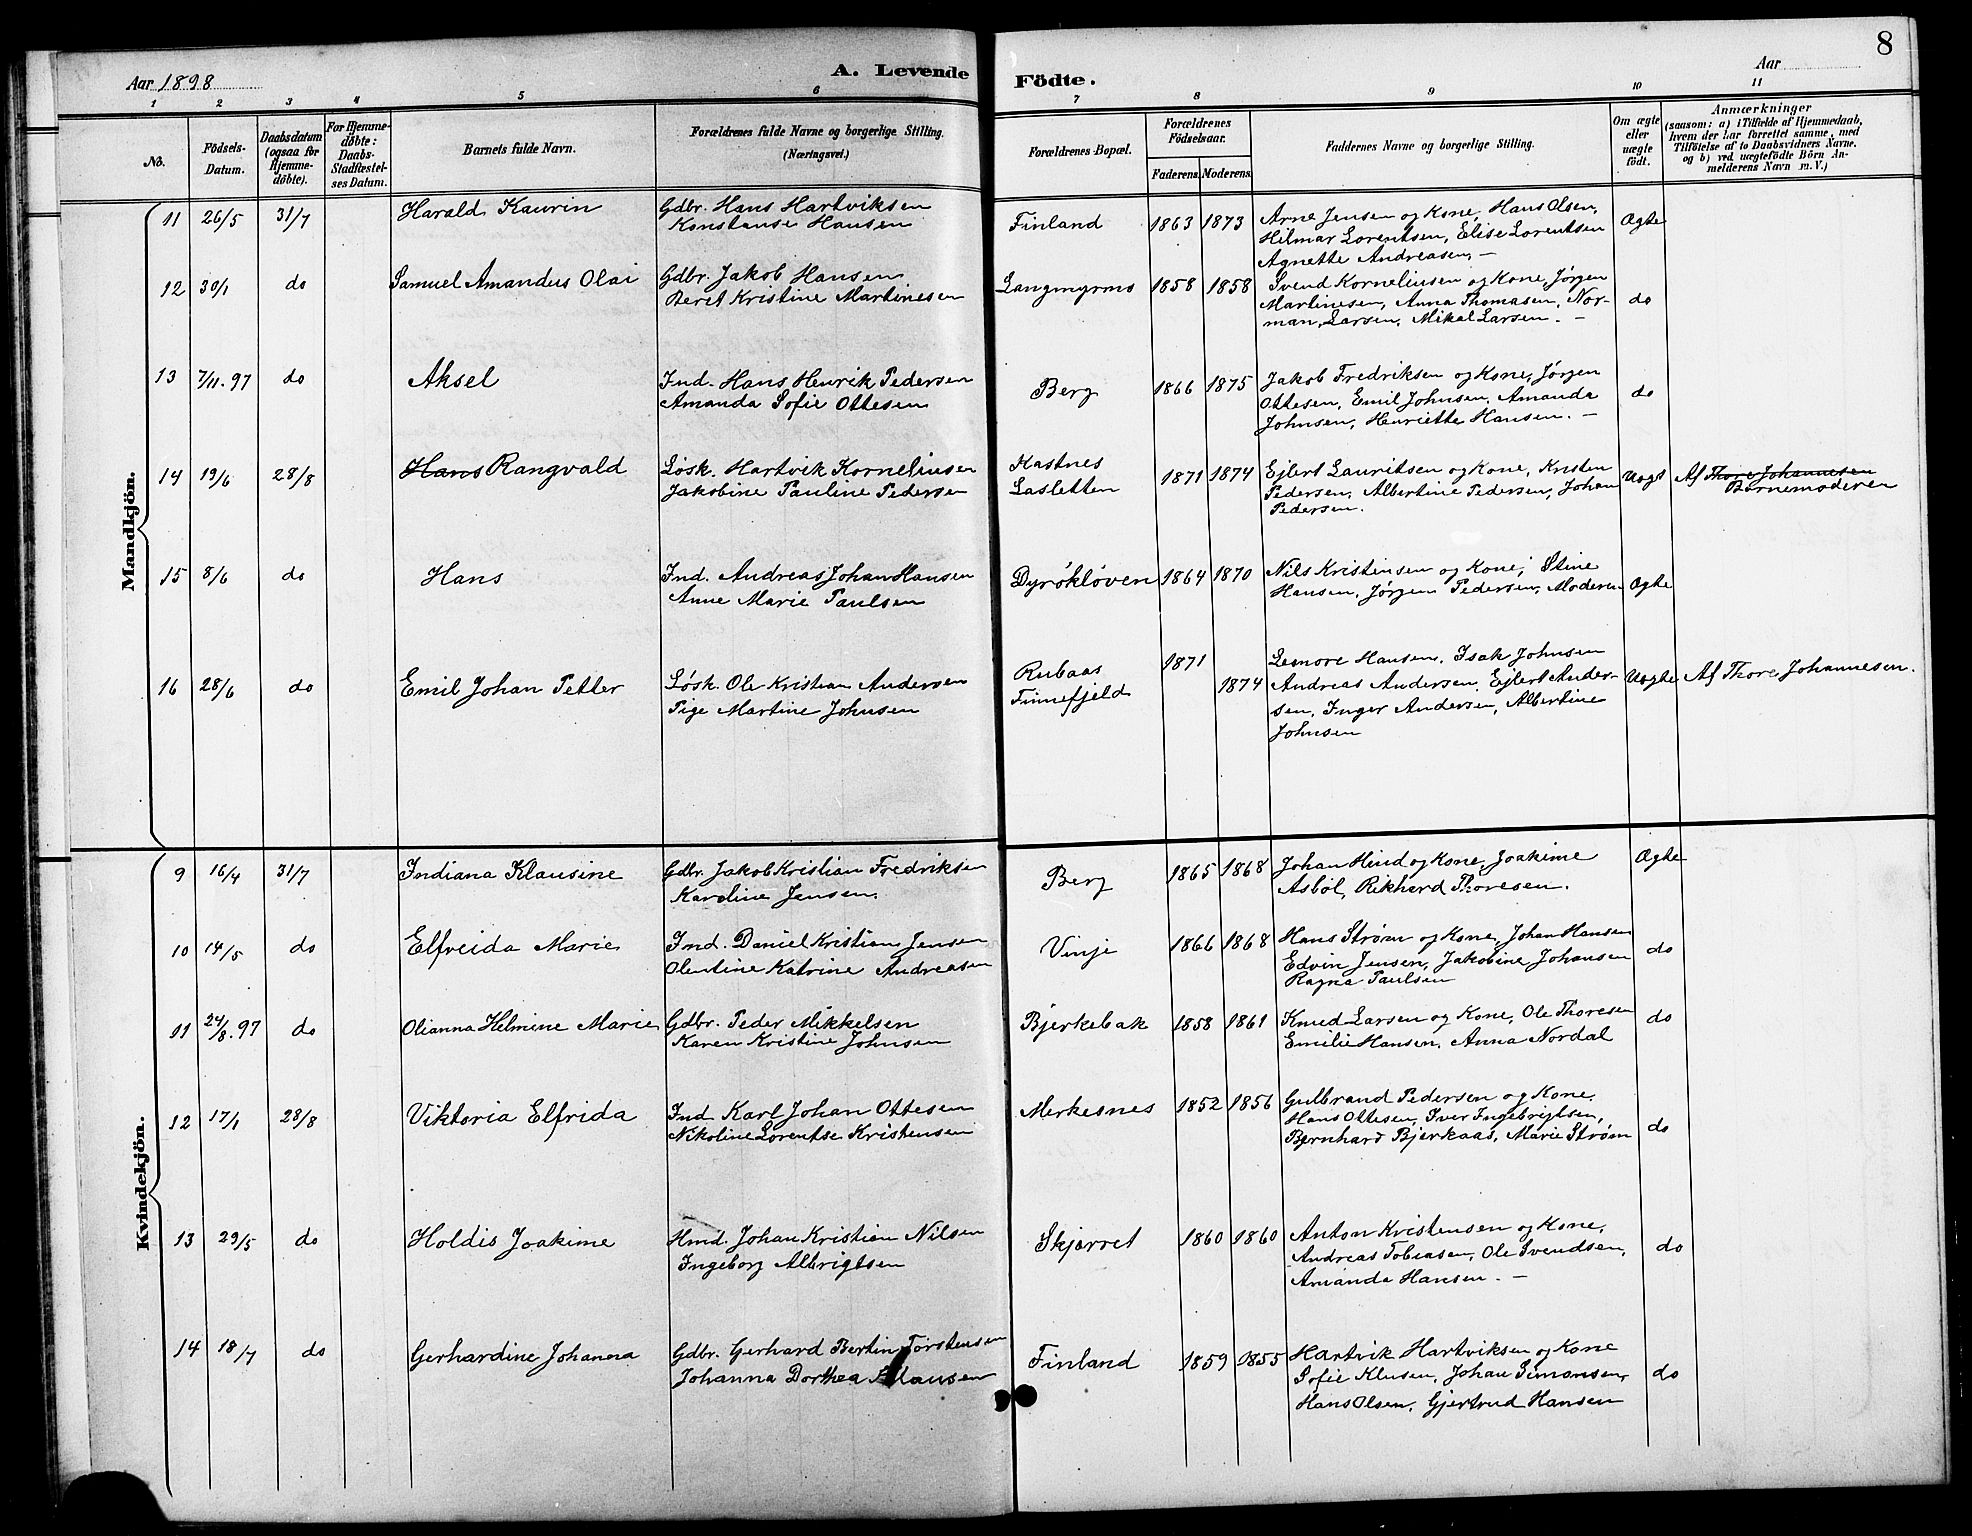 8
Aar 1898
A. Levende Födte.
Aar
1 2 3 4 5 6 7 8 9 10 11
No.
Födsels-Datum.
Daabsdatum (ogsaa for Hjemmedöbte).
For Hjemmedöbte: Daabs-Stadfæstelses Datum.
Barnets fulde Navn.
Forældrenes fulde Navne og borgerlige Stilling. (Næringsvei.)
Forældrenes Bopæl.
Forældrenes Födselsaar.
Faderens. Moderens.
Faddernes Navne og borgerlige Stilling.
Om ægte eller uægte födt.
Anmærkninger
(saasom: a) i Tilfælde af Hjemmedaab, hvem der har forrettet samme, med Tilföielse af to Daabsvidners Navne, og b) ved uægtefödte Börn Anmelderens Navn m. V.)
Mandkjön.
11 26/5 31/7 Harald Kaurin Gdbr. Hans Hartviksen Finland 1863 1873 Arne Jensen og Kone, Hans Olsen, Ægte
Konstanse Hansen Hilmar Lorentsen, Elise Lorentsen
Agnette Andreasen, —
12 30/1 do Samuel Amandus Olai Gdbr. Jakob Hansen Langmyrmo 1858 1858 Svend Korneliusen og Kone, Jørgen
Beret Kristine Martinesen Martinesen, Anna Thomasen, Nor- do
man, Larsen, Mikal Larsen. —
13 7/11.97 do Aksel Ind. Hans Henrik Pedersen Berg 1866 1875 Jakob Fredriksen og Kone, Jørgen
Amanda Sofie Ottesen Ottesen, Emil Johnsen, Amanda do
Johnsen, Henriette Hansen. —
14 19/6 28/8 Hans Rangvald Løsk. Hartvik Korneliusen Kastnes 1871 1874 Ejlert Lauritsen og Kone, Kristen Uægt Af Thore Johannesen
Jakobine Pauline Pedersen Lasletten Pedersen, Albertine Pedersen, Johan Barnemoderen
Pedersen.
15 8/6 do Hans Ind. Andreas Johan Hansen Dyrökløven 1864 1870 Nils Kristensen og Kone, Stine
Anne Marie Paulsen Hansen, Jørgen Pedersen, Moderen Ægte
16 28/6 do Emil Johan Petter Løsk. Ole Kristian Andersen Rubaas 1871 Leonore Hansen. Isak Johnsen
Pige Martine Johnsen Finnefjeld 1874 Andreas Andersen, Ejlert Ander- Uægte Af Thore Johannesen.
sen, Inger Andersen, Albertine
Johnsen
Kvindekjön.
9 16/4 31/7 Indiana Klausine Gdbr. Jakob Kristian Fredriksen Berg 1865 1868 Johan Hind og Kone, Joakime Ægte
Karoline Jensen. Asböl, Rikhard Thoresen.
10 14/5 do Elfreida Marie Ind. Daniel Kristian Jensen Vinje 1866 1868 Hans Strøm og Kone, Johan Hansen
Olentine Katrine Andreasen Edvin Jensen, Jakobine Johansen do
Ragna Paulsen
11 24/8.97 do Olianna Helmine Marie Gdbr. Peder Mikkelsen Bjerkebak 1858 1861 Knud Larsen og Kone, Ole Thoresen do
Karen Kristine Johnsen Emilie Hansen, Anna Nordal
12 17/1 28/8 Viktoria Elfrida Ind Karl Johan Ottesen Merkesnes 1852 1856 Gulbrand Pedersen og Kone,
Nikoline Lorentse Kristensen Hans Ottesen, Iver Ingebrigtsen, do
Bernhard Bjerkaas, Marie Strøm
13 29/5 do Holdis Joakime Hmd. Johan Kristian Nilsen Skjærret 1860 1860 Anton Kristensen og Kone,
Ingeborg Albrigtsen Andreas Tobiasen, Ole Svendsen, do
Amanda Hansen. —
14 18/7 do Gerhardine Johanna Gdbr. Gerhard Bertin Torstensen Finland 1859 1855 Hartvik Hartviksen og Kone
Johanna Dorthea Klausen Sofie Klusen, Johan Simonsen, do
Hans Olsen, Gjertrud Hansen